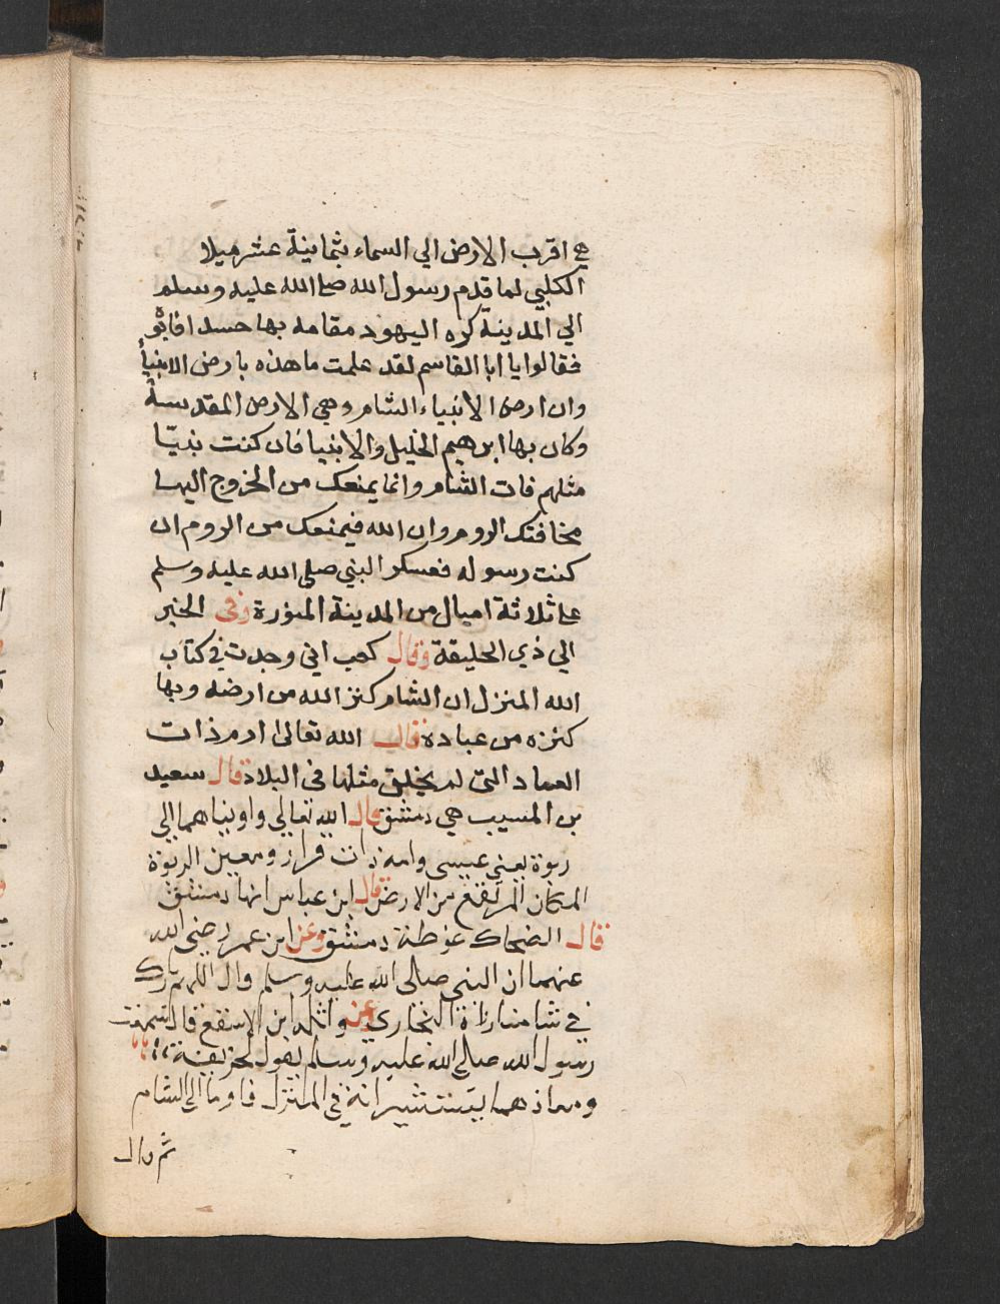 هي اقرب الارض الي السماء بثمانية عشر ميلا
الكلبي لما قدم رسول الله صلى الله عليه وسلم
الي المدينة كره اليهود مقامه بها حسدا فاتوه
فقالوا يا ابا القاسم لقد علمت ما هذه بارض الانبيأ
وان ارض الانبياء الشام وهي الارض المقدسة
وكان بها ابرهيم الخليل والانبيا فان كنت نبيّا
مثلهم فات الشام وانما يمنعك من الخروج اليها
مخافتك الروم وان الله فيمنعك من الروم ان
كنت رسوله فعسكر النبي صلى الله عليه وسلم
على ثلاثة اميال من المدينة المنورة وفى الخبر
الي ذي الحليفة وقال كعب اني وجدت في كتاب
الله المنزل ان الشام كنز الله من ارضه وبها
كنزه من عباده قال الله تعالى ارم ذات
العماد التى لم يخلق مثلها فى البلاد قال سعيد
بن المسيب هي دمشق قال الله تعالي واويناهما الي
ربوة يعني عيسى وامه ذات قرار ومعين الربوة
المكان المرتفع من الارض قال ابن عباس انها دمشق
قال الضحاك غوطة دمشق وعن ابن عمر رضي الله
عنهما ان النبي صلى الله عليه وسلم قال اللهم بارك
في شامنا رواة البخاري وعن واثلة ابن الاسقع قال سمعت
رسول الله صلى الله عليه وسلم يقول لحذيفة
ومعاذ هما يستشيرانه في المنزل فاوما الي الشام
ثم قال